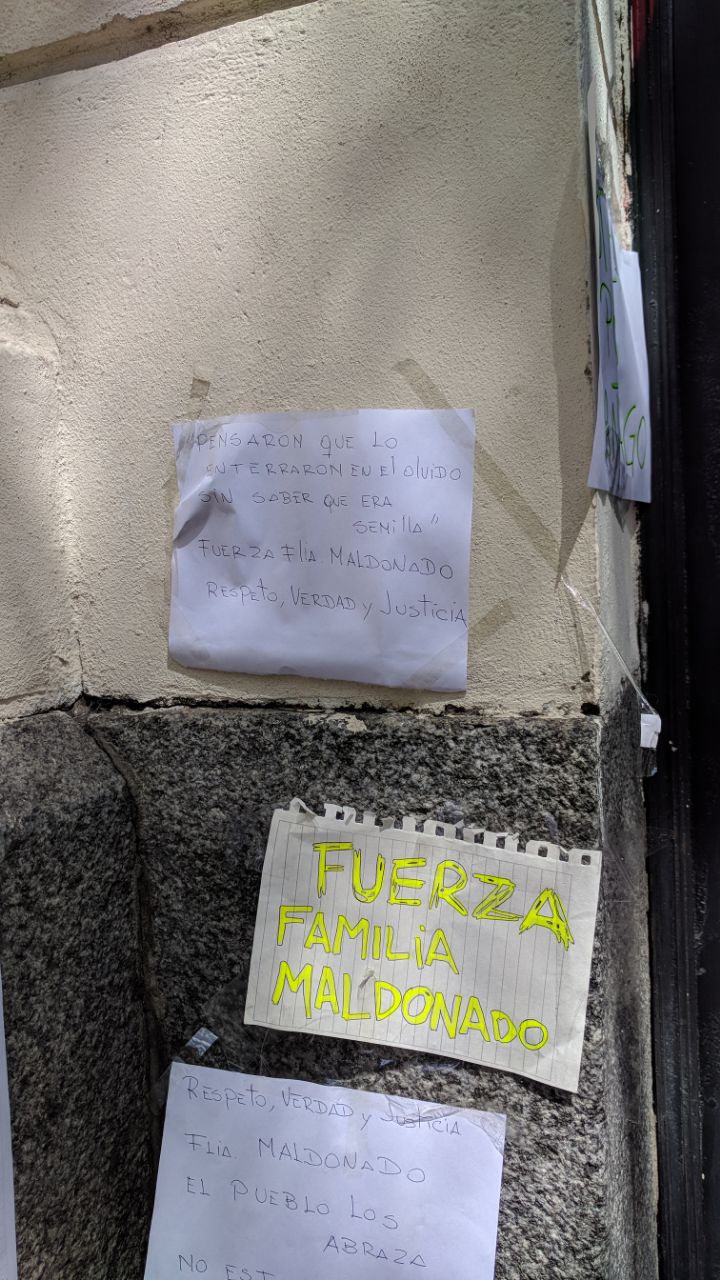 "PENSARON QUE LO
ENTERRARON EN El OlVIDO
SIN SABER QUE ERA
SEMIllA"
FUERZA Flia. MALDONADO
RESPEtO, VERDAD y JUSTICIA
FUERZA
FAMILiA
MALDONADO
RESPEtO, VERDAD y JUSTICIA
FLIA. MALDONADO
EL PUEBLO LOS
ABRAZA
NO